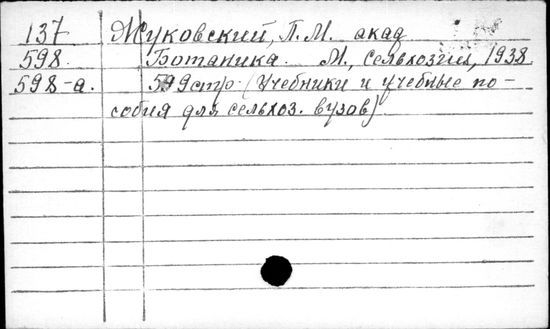 137 Жуковский, П. М. акад
598. Ботаника. М., Сельхозгиз, 1938
598-а. 599 стр. (Учебники и учебные по-
собия для сельхоз. вузов)